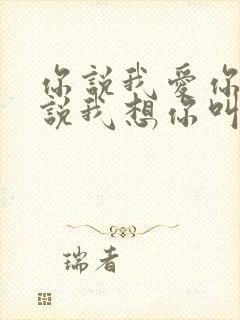 你說我愛你
說我想你叫
瑞者